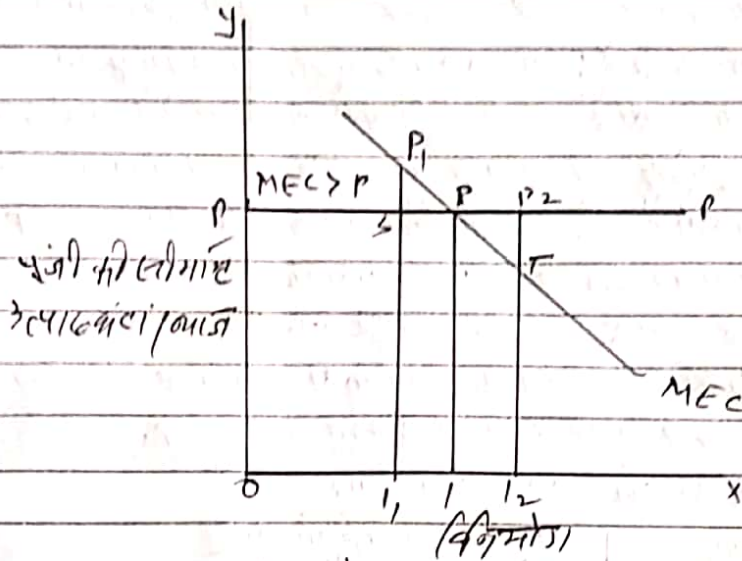 y
P₁
MEC > P
P P P2 P
S
पूंजी की सीमांत
T
उत्पादकता / ब्याज
MEC
0 I₁ I I₂ X
विनियोग